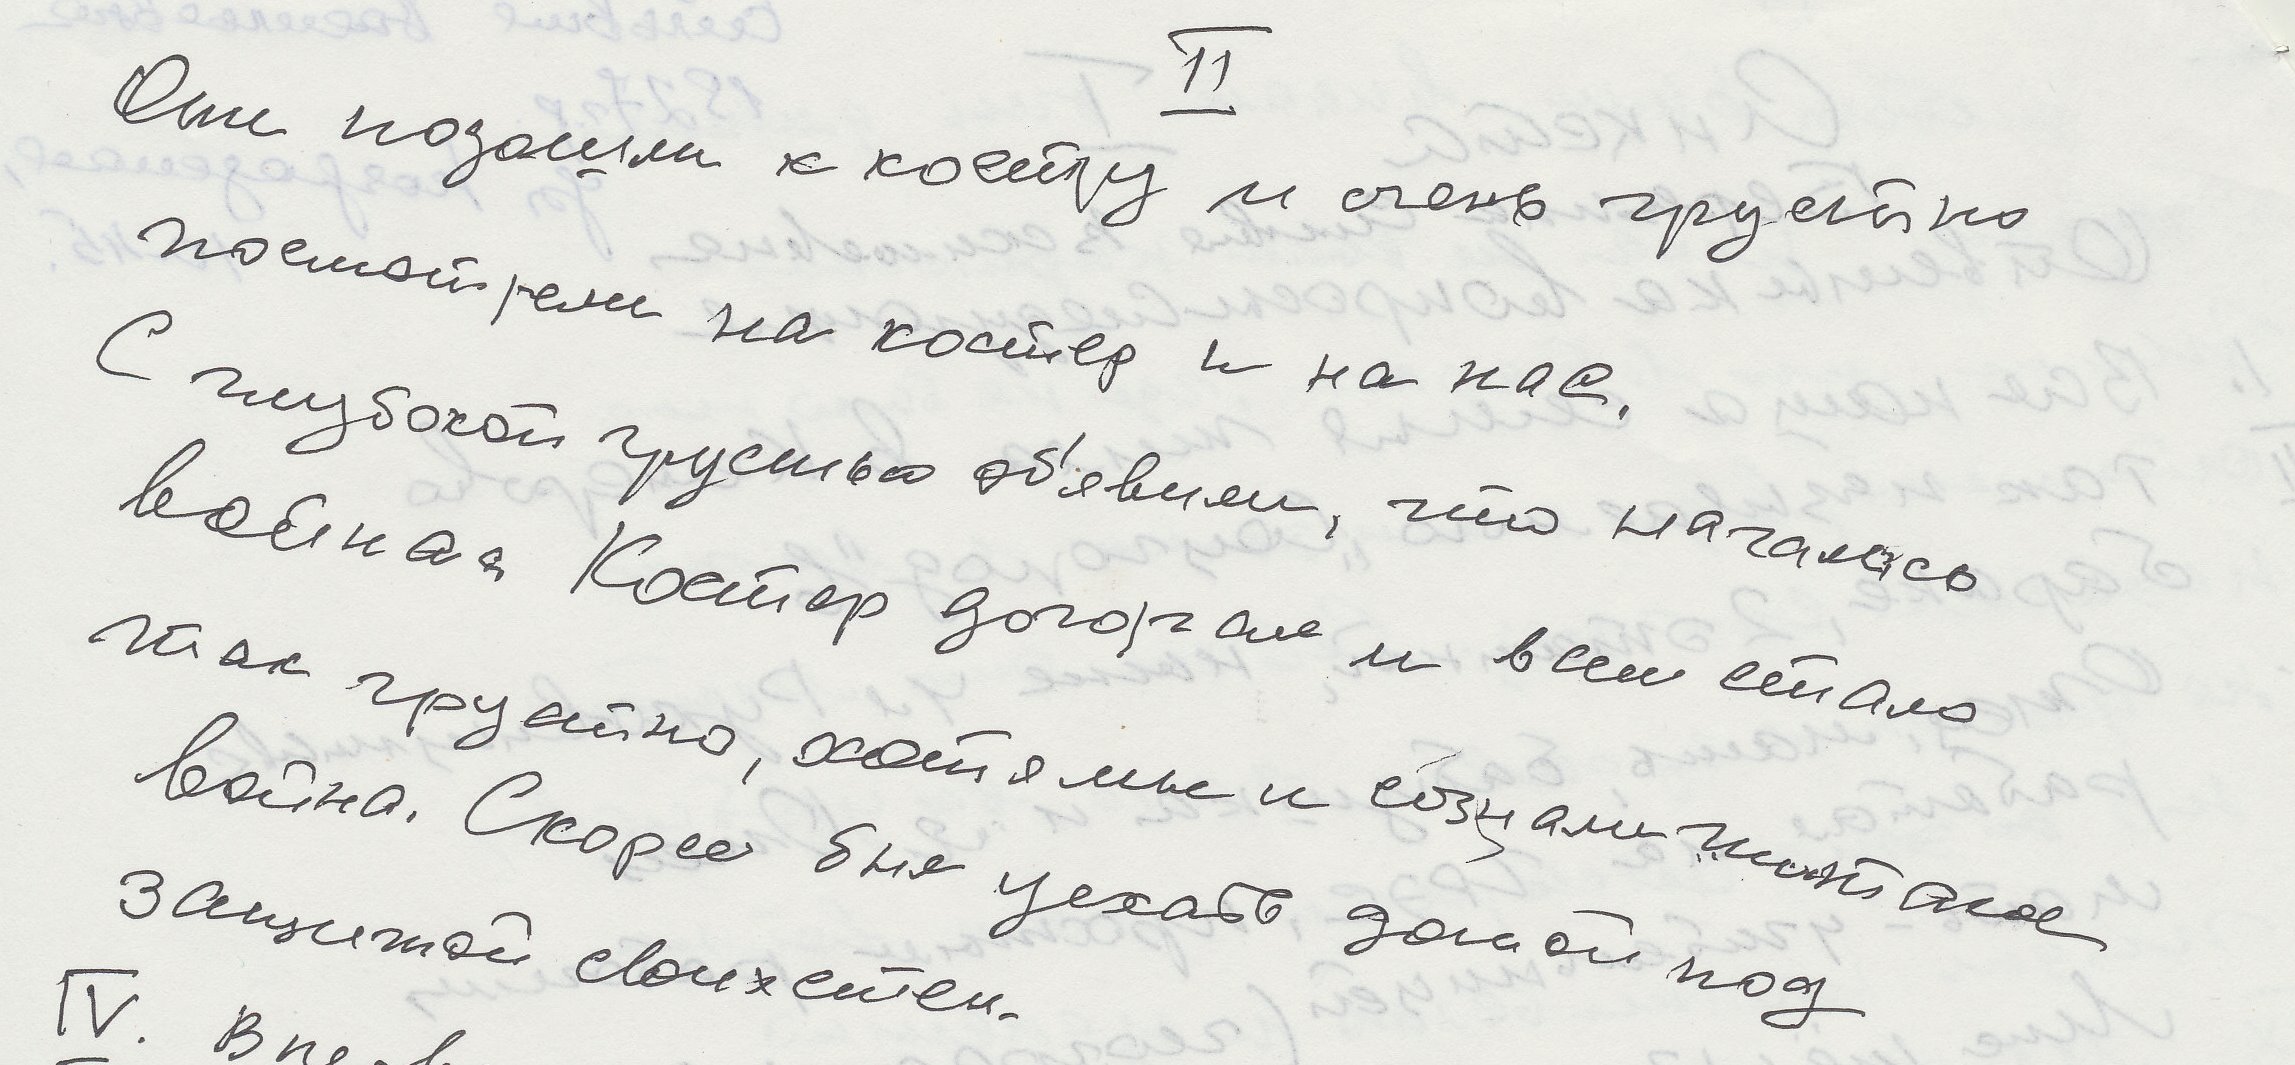 II
Они подошли к костру и очень грустно
посмотрели на костер и на нас.
С глубокой грустью об'явили, что началась
война. Костер догорал и всем стало
так грустно, хотя мы и не знали что такое
война. Скорее бы уехать домой под
защитой своих стен.
IV. В